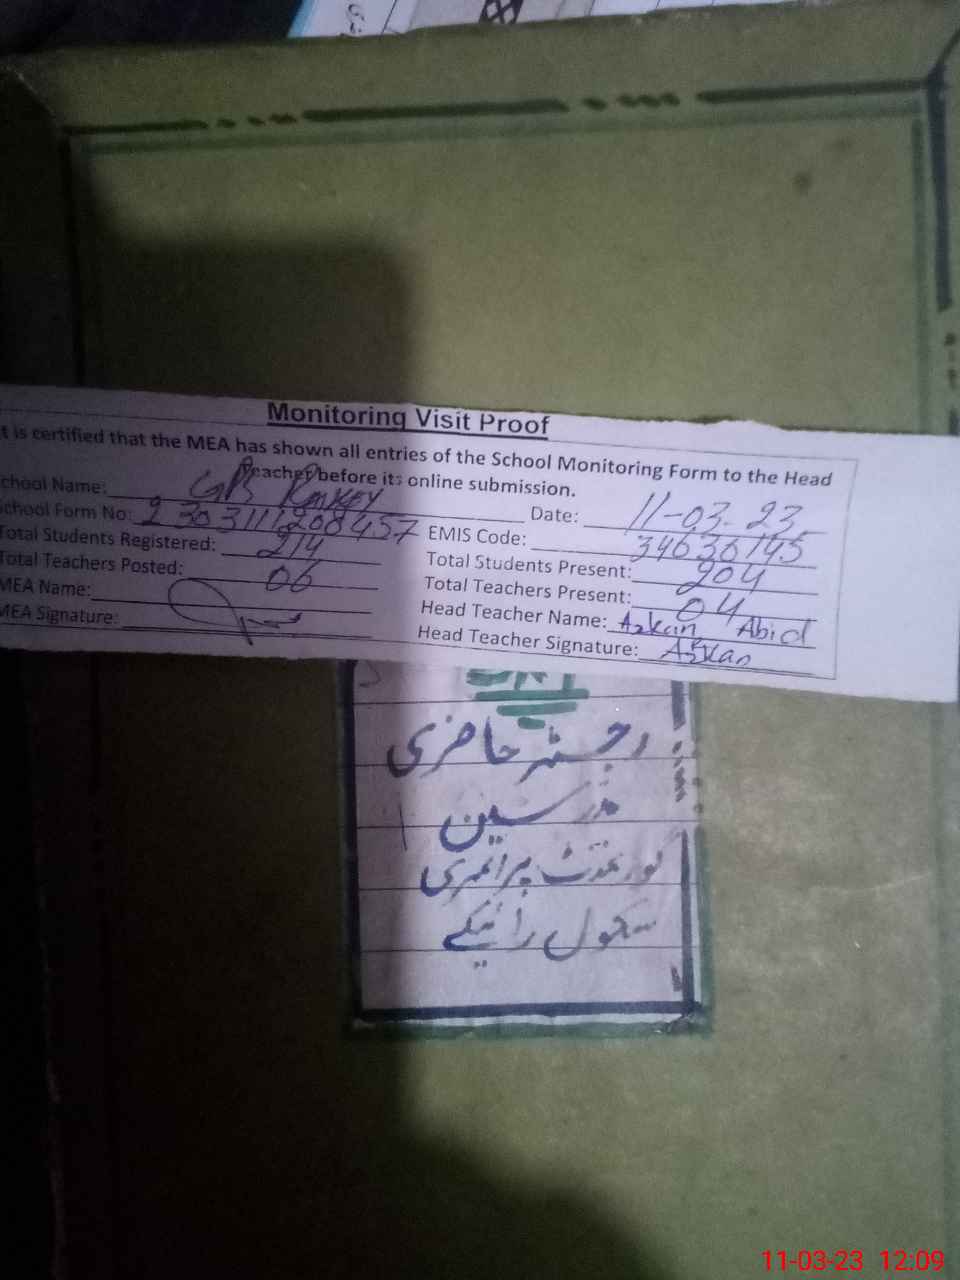 Monitoring Visit Proof
t is certified that the MEA has shown all entries of the School Monitoring Form to the Head
Teacher before its online submission.
chool Name: GPS
Date: 11-03-23
School Form No: 2303111208457
EMIS Code: 34636145
Total Students Registered: 214
Total Students Present: 204
Total Teachers Posted: 06
Total Teachers Present: 04
MEA Name:
Head Teacher Name: Azkan Abid
MEA Signature:
Head Teacher Signature: Azkan
رجسٹر حاضری
مدرسین
گورنمنٹ پرائمری
سکول رائیکے
11-03-23 12:09